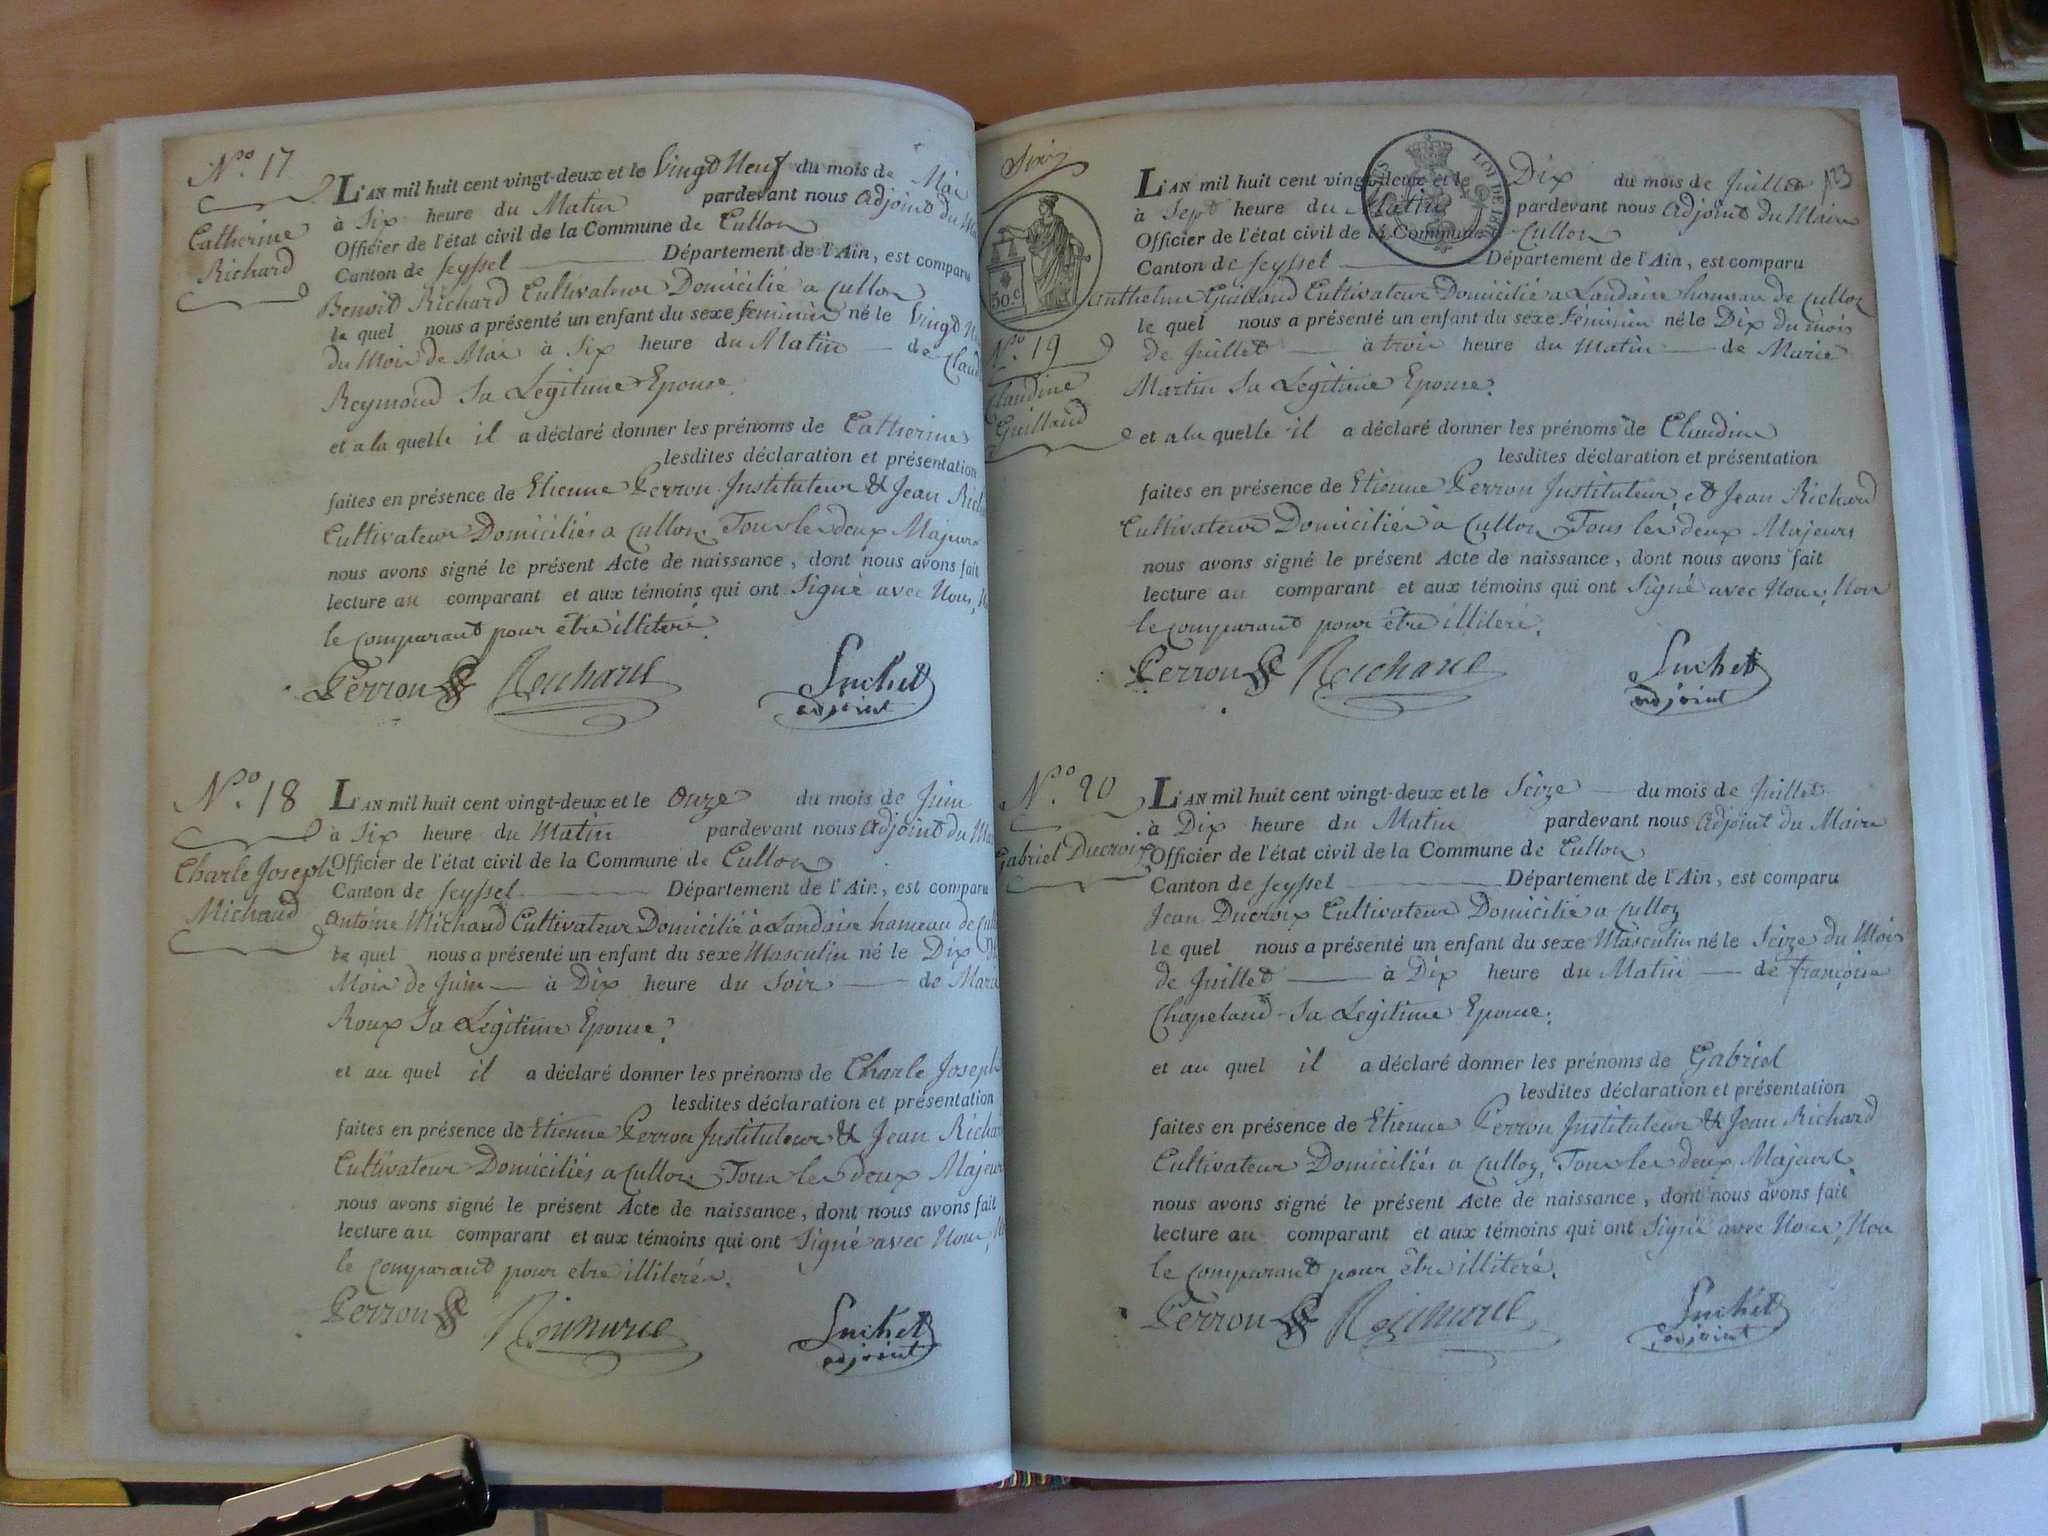 N.º 17
Catherine
Richard
L'AN mil huit cent vingt-deux et le Vingt Neuf du mois de Mai
à Six heure du Matin pardevant nous adjoint du
Officier de l'état civil de la Commune de Culloz
Canton de Seyssel Département de l'Ain, est comparu
Benoit Richard Cultivateur Domicilié a Culloz
le quel nous a présenté un enfant du sexe feminin né le Vingt
du Mois de Mai à Six heure du Matin de
Reymond Sa Legitime Epouse.
et a la quelle il a déclaré donner les prénoms de Catherine
lesdites déclaration et présentation
faites en présence de Etienne Perron Instituteur & Jean
Cultivateur Domiciliés a Culloz Tous les deux Majeurs
nous avons signé le présent Acte de naissance, dont nous avons fait
lecture au comparant et aux témoins qui ont Signé avec Nous,
le comparant pour être illiteré.
Perron Richard Suchet
adjoint
N.º 18
Charle Joseph
Michaud
L'AN mil huit cent vingt-deux et le Onze du mois de Juin
à Six heure du Matin pardevant nous adjoint du
Officier de l'état civil de la Commune de Culloz
Canton de Seyssel Département de l'Ain, est comparu
Antoine Michaud Cultivateur Domicilié à Landaise hameau de
le quel nous a présenté un enfant du sexe Masculin né le Dix
Mois de Juin à Dix heure du Soir de
Roux Sa Legitime Epouse.
et au quel il a déclaré donner les prénoms de Charle Joseph
lesdites déclaration et présentation
faites en présence de Etienne Perron Instituteur & Jean
Cultivateur Domiciliés a Culloz Tous les deux Majeurs
nous avons signé le présent Acte de naissance, dont nous avons fait
lecture au comparant et aux témoins qui ont Signé avec Nous,
le comparant pour etre illiteré.
Perron Suchet
adjoint
123
50.c
LOI DE
N.º 19
Claudine
Guilland
L'AN mil huit cent vingt-deux et le Dix du mois de Juillet
à Sept heure du Matin pardevant nous adjoint du Maire
Officier de l'état civil de la Commune de Culloz
Canton de Seyssel Département de l'Ain, est comparu
Anthelme Guilland Cultivateur Domicilié a Landaise hameau de Culloz
le quel nous a présenté un enfant du sexe Féminin né le Dix du mois
de Juillet à trois heure du Matin de Marie
Martin Sa Legitime Epouse.
et a la quelle il a déclaré donner les prénoms de Claudine
lesdites déclaration et présentation
faites en présence de Etienne Perron Instituteur et Jean Richard
Cultivateur Domiciliés à Culloz Tous les deux Majeurs
nous avons signé le présent Acte de naissance, dont nous avons fait
lecture au comparant et aux témoins qui ont Signé avec Nous, Non
le comparant pour être illiteré.
Perron Richard Suchet
adjoint
N.º 20
Gabriel Ducroix
L'AN mil huit cent vingt-deux et le Seize du mois de Juillet
à Dix heure du Matin pardevant nous adjoint du Maire
Officier de l'état civil de la Commune de Culloz
Canton de Seyssel Département de l'Ain, est comparu
Jean Ducroix Cultivateur Domicilié a Culloz
le quel nous a présenté un enfant du sexe Masculin né le Seize du Mois
de Juillet à Dix heure du Matin de françoise
Chapeland Sa Legitime Epouse.
et au quel il a déclaré donner les prénoms de Gabriel
lesdites déclaration et présentation
faites en présence de Etienne Perron Instituteur & Jean Richard
Cultivateur Domiciliés a Culloz, Tous les deux Majeurs
nous avons signé le présent Acte de naissance, dont nous avons fait
lecture au comparant et aux témoins qui ont Signé avec Nous, Non
le comparant pour être illiteré.
Perron Suchet
adjoint